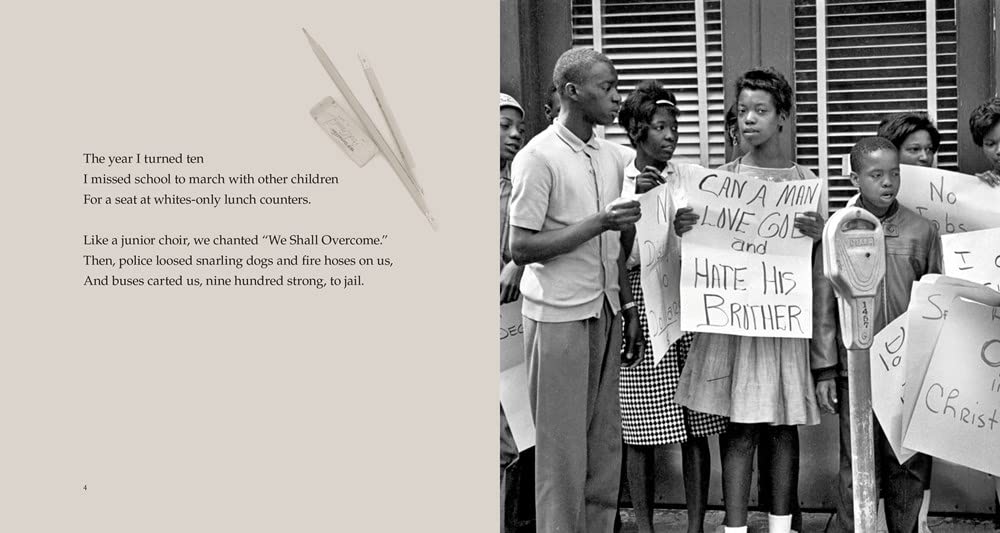 The year I turned ten
I missed school to march with other children
For a seat at whites-only lunch counters.
Like a junior choir, we chanted “We Shall Overcome.”
Then, police loosed snarling dogs and fire hoses on us,
And buses carted us, nine hundred strong, to jail.
4
CAN A MAN
LOVE GOD
and
HATE HIS
BROTHER
No
No
I
Christ